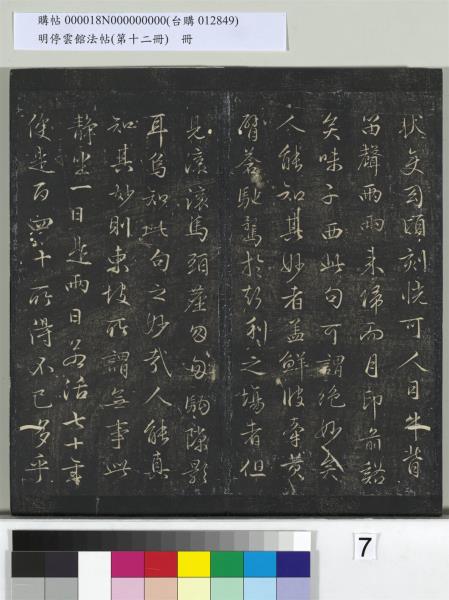 購帖 000018N000000000(台購 012849)
明停雲館法帖(第十二冊)　冊
狀變幻頃刻恍可人目牛背
笛聲兩兩来歸而月印前谿
矣味子西此句可謂絶妙矣
人能知其妙者盖鮮彼牽黄
臂蒼馳騖於聲利之場者但
見滚滚馬頭塵匆匆駒隙影
耳烏知此句之妙哉人能真
知其妙則東坡所謂無事此
静坐一日是兩日若活七十年
便是百四十所得不已多乎
7